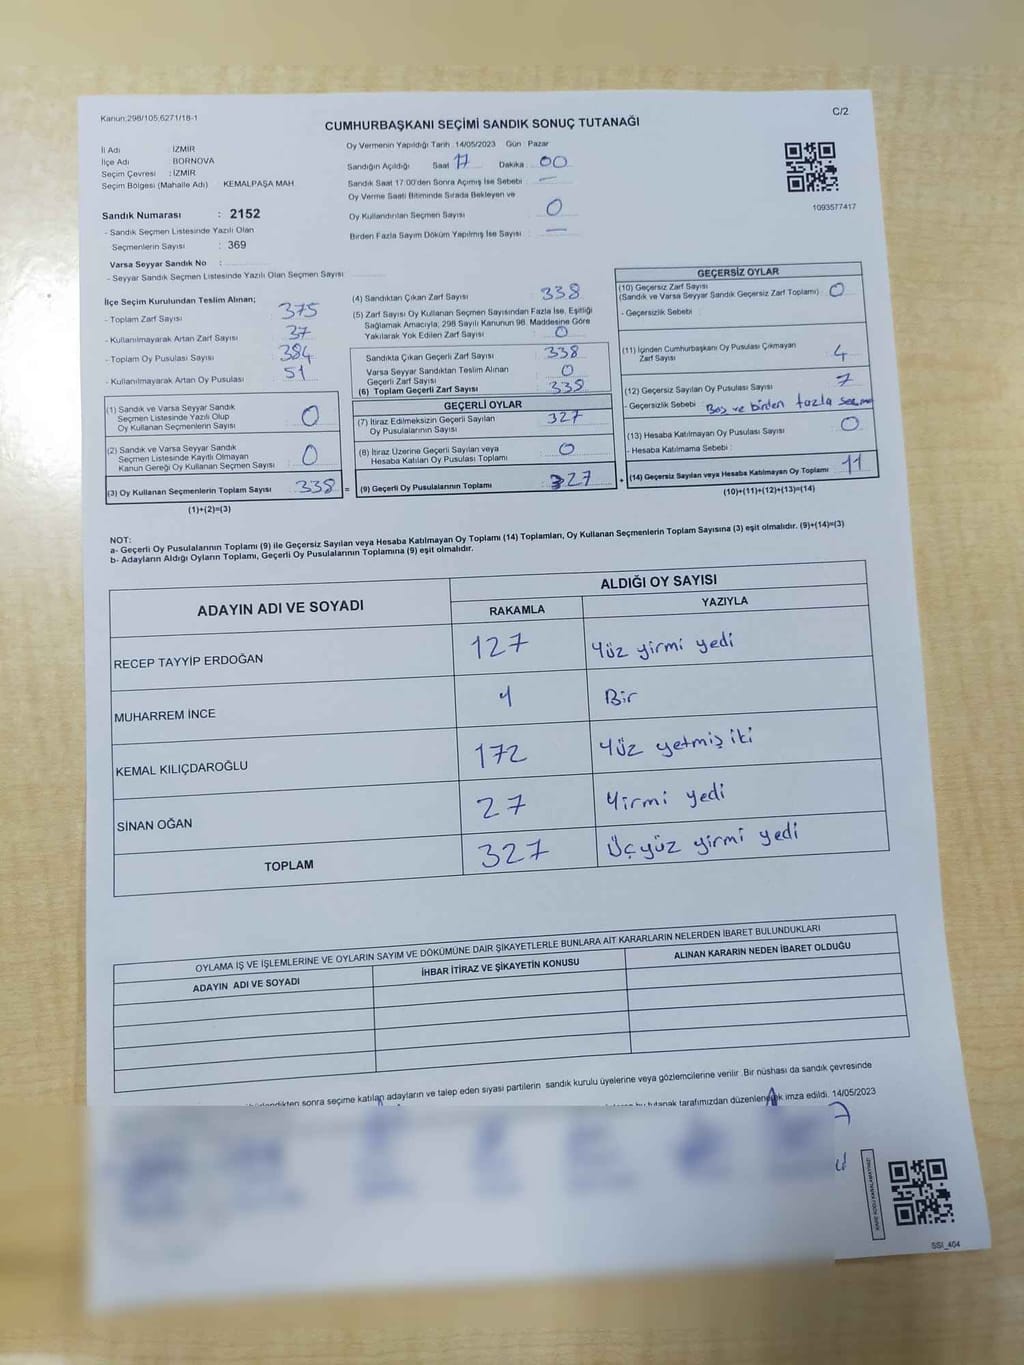 Kanun:298/105,6271/18-1
C/2
CUMHURBAŞKANI SEÇİMİ SANDIK SONUÇ TUTANAĞI
İl Adı : İZMİR
İlçe Adı : BORNOVA
Seçim Çevresi : İZMİR
Seçim Bölgesi (Mahalle Adı) KEMALPAŞA MAH
Oy Vermenin Yapıldığı Tarih :14/05/2023 Gün : Pazar
Sandığın Açıldığı Saat 17 Dakika 00
Sandık Saat 17:00'den Sonra Açımış İse Sebebi : —
Oy Verme Saati Bitiminde Sırada Bekleyen ve
Oy Kullandırılan Seçmen Sayısı 0
Birden Fazla Sayım Döküm Yapılmış İse Sayısı : —
1093577417
Sandık Numarası : 2152
- Sandık Seçmen Listesinde Yazılı Olan
Seçmenlerin Sayısı : 369
Varsa Seyyar Sandık No :
- Seyyar Sandık Seçmen Listesinde Yazılı Olan Seçmen Sayısı
İlçe Seçim Kurulundan Teslim Alınan;
- Toplam Zarf Sayısı : 375
- Kullanılmayarak Artan Zarf Sayısı : 37
- Toplam Oy Pusulası Sayısı : 384
- Kullanılmayarak Artan Oy Pusulası : 51
(1) Sandık ve Varsa Seyyar Sandık
Seçmen Listesinde Yazılı Olup
Oy Kullanan Seçmenlerin Sayısı 0
(2) Sandık ve Varsa Seyyar Sandık
Seçmen Listesinde Kayıtlı Olmayan
Kanun Gereği Oy Kullanan Seçmen Sayısı 0
(3) Oy Kullanan Seçmenlerin Toplam Sayısı 338 =
(1)+(2)=(3)
(4) Sandıktan Çıkan Zarf Sayısı 338
(5) Zarf Sayısı Oy Kullanan Seçmen Sayısından Fazla İse, Eşitliği
Sağlamak Amacıyla, 298 Sayılı Kanunun 98. Maddesine Göre
Yakılarak Yok Edilen Zarf Sayısı : 0
Sandıkta Çıkan Geçerli Zarf Sayısı : 338
Varsa Seyyar Sandıktan Teslim Alınan
Geçerli Zarf Sayısı : 0
(6) Toplam Geçerli Zarf Sayısı : 338
GEÇERLİ OYLAR
(7) İtiraz Edilmeksizin Geçerli Sayılan
Oy Pusulalarının Sayısı : 327
(8) İtiraz Üzerine Geçerli Sayılan veya
Hesaba Katılan Oy Pusulası Toplamı : 0
(9) Geçerli Oy Pusulalarının Toplamı : 327 +
GEÇERSİZ OYLAR
(10) Geçersiz Zarf Sayısı
(Sandık ve Varsa Seyyar Sandık Geçersiz Zarf Toplamı) : 0
- Geçersizlik Sebebi :
(11) İçinden Cumhurbaşkanı Oy Pusulası Çıkmayan
Zarf Sayısı : 4
(12) Geçersiz Sayılan Oy Pusulası Sayısı : 7
- Geçersizlik Sebebi : Boş ve birden fazla seçme
(13) Hesaba Katılmayan Oy Pusulası Sayısı : 0
- Hesaba Katılmama Sebebi :
(14) Geçersiz Sayılan veya Hesaba Katılmayan Oy Toplamı : 11
(10)+(11)+(12)+(13)=(14)
NOT:
a- Geçerli Oy Pusulalarının Toplamı (9) ile Geçersiz Sayılan veya Hesaba Katılmayan Oy Toplamı (14) Toplamları, Oy Kullanan Seçmenlerin Toplam Sayısına (3) eşit olmalıdır. (9)+(14)=(3)
b- Adayların Aldığı Oyların Toplamı, Geçerli Oy Pusulalarının Toplamına (9) eşit olmalıdır.
ADAYIN ADI VE SOYADI
ALDIĞI OY SAYISI
RAKAMLA YAZIYLA
RECEP TAYYİP ERDOĞAN 127 Yüz yirmi yedi
MUHARREM İNCE 1 Bir
KEMAL KILIÇDAROĞLU 172 Yüz yetmiş iki
SİNAN OĞAN 27 Yirmi yedi
TOPLAM 327 Üçyüz yirmi yedi
OYLAMA İŞ VE İŞLEMLERİNE VE OYLARIN SAYIM VE DÖKÜMÜNE DAİR ŞİKAYETLERLE BUNLARA AİT KARARLARIN NELERDEN İBARET BULUNDUKLARI
ADAYIN ADI VE SOYADI İHBAR İTİRAZ VE ŞİKAYETİN KONUSU ALINAN KARARIN NEDEN İBARET OLDUĞU
sonra seçime katılan adayların ve talep eden siyasi partilerin sandık kurulu üyelerine veya gözlemcilerine verilir. Bir nüshası da sandık çevresinde
bu tutanak tarafımızdan düzenlenerek imza edildi. 14/05/2023
SSİ_404